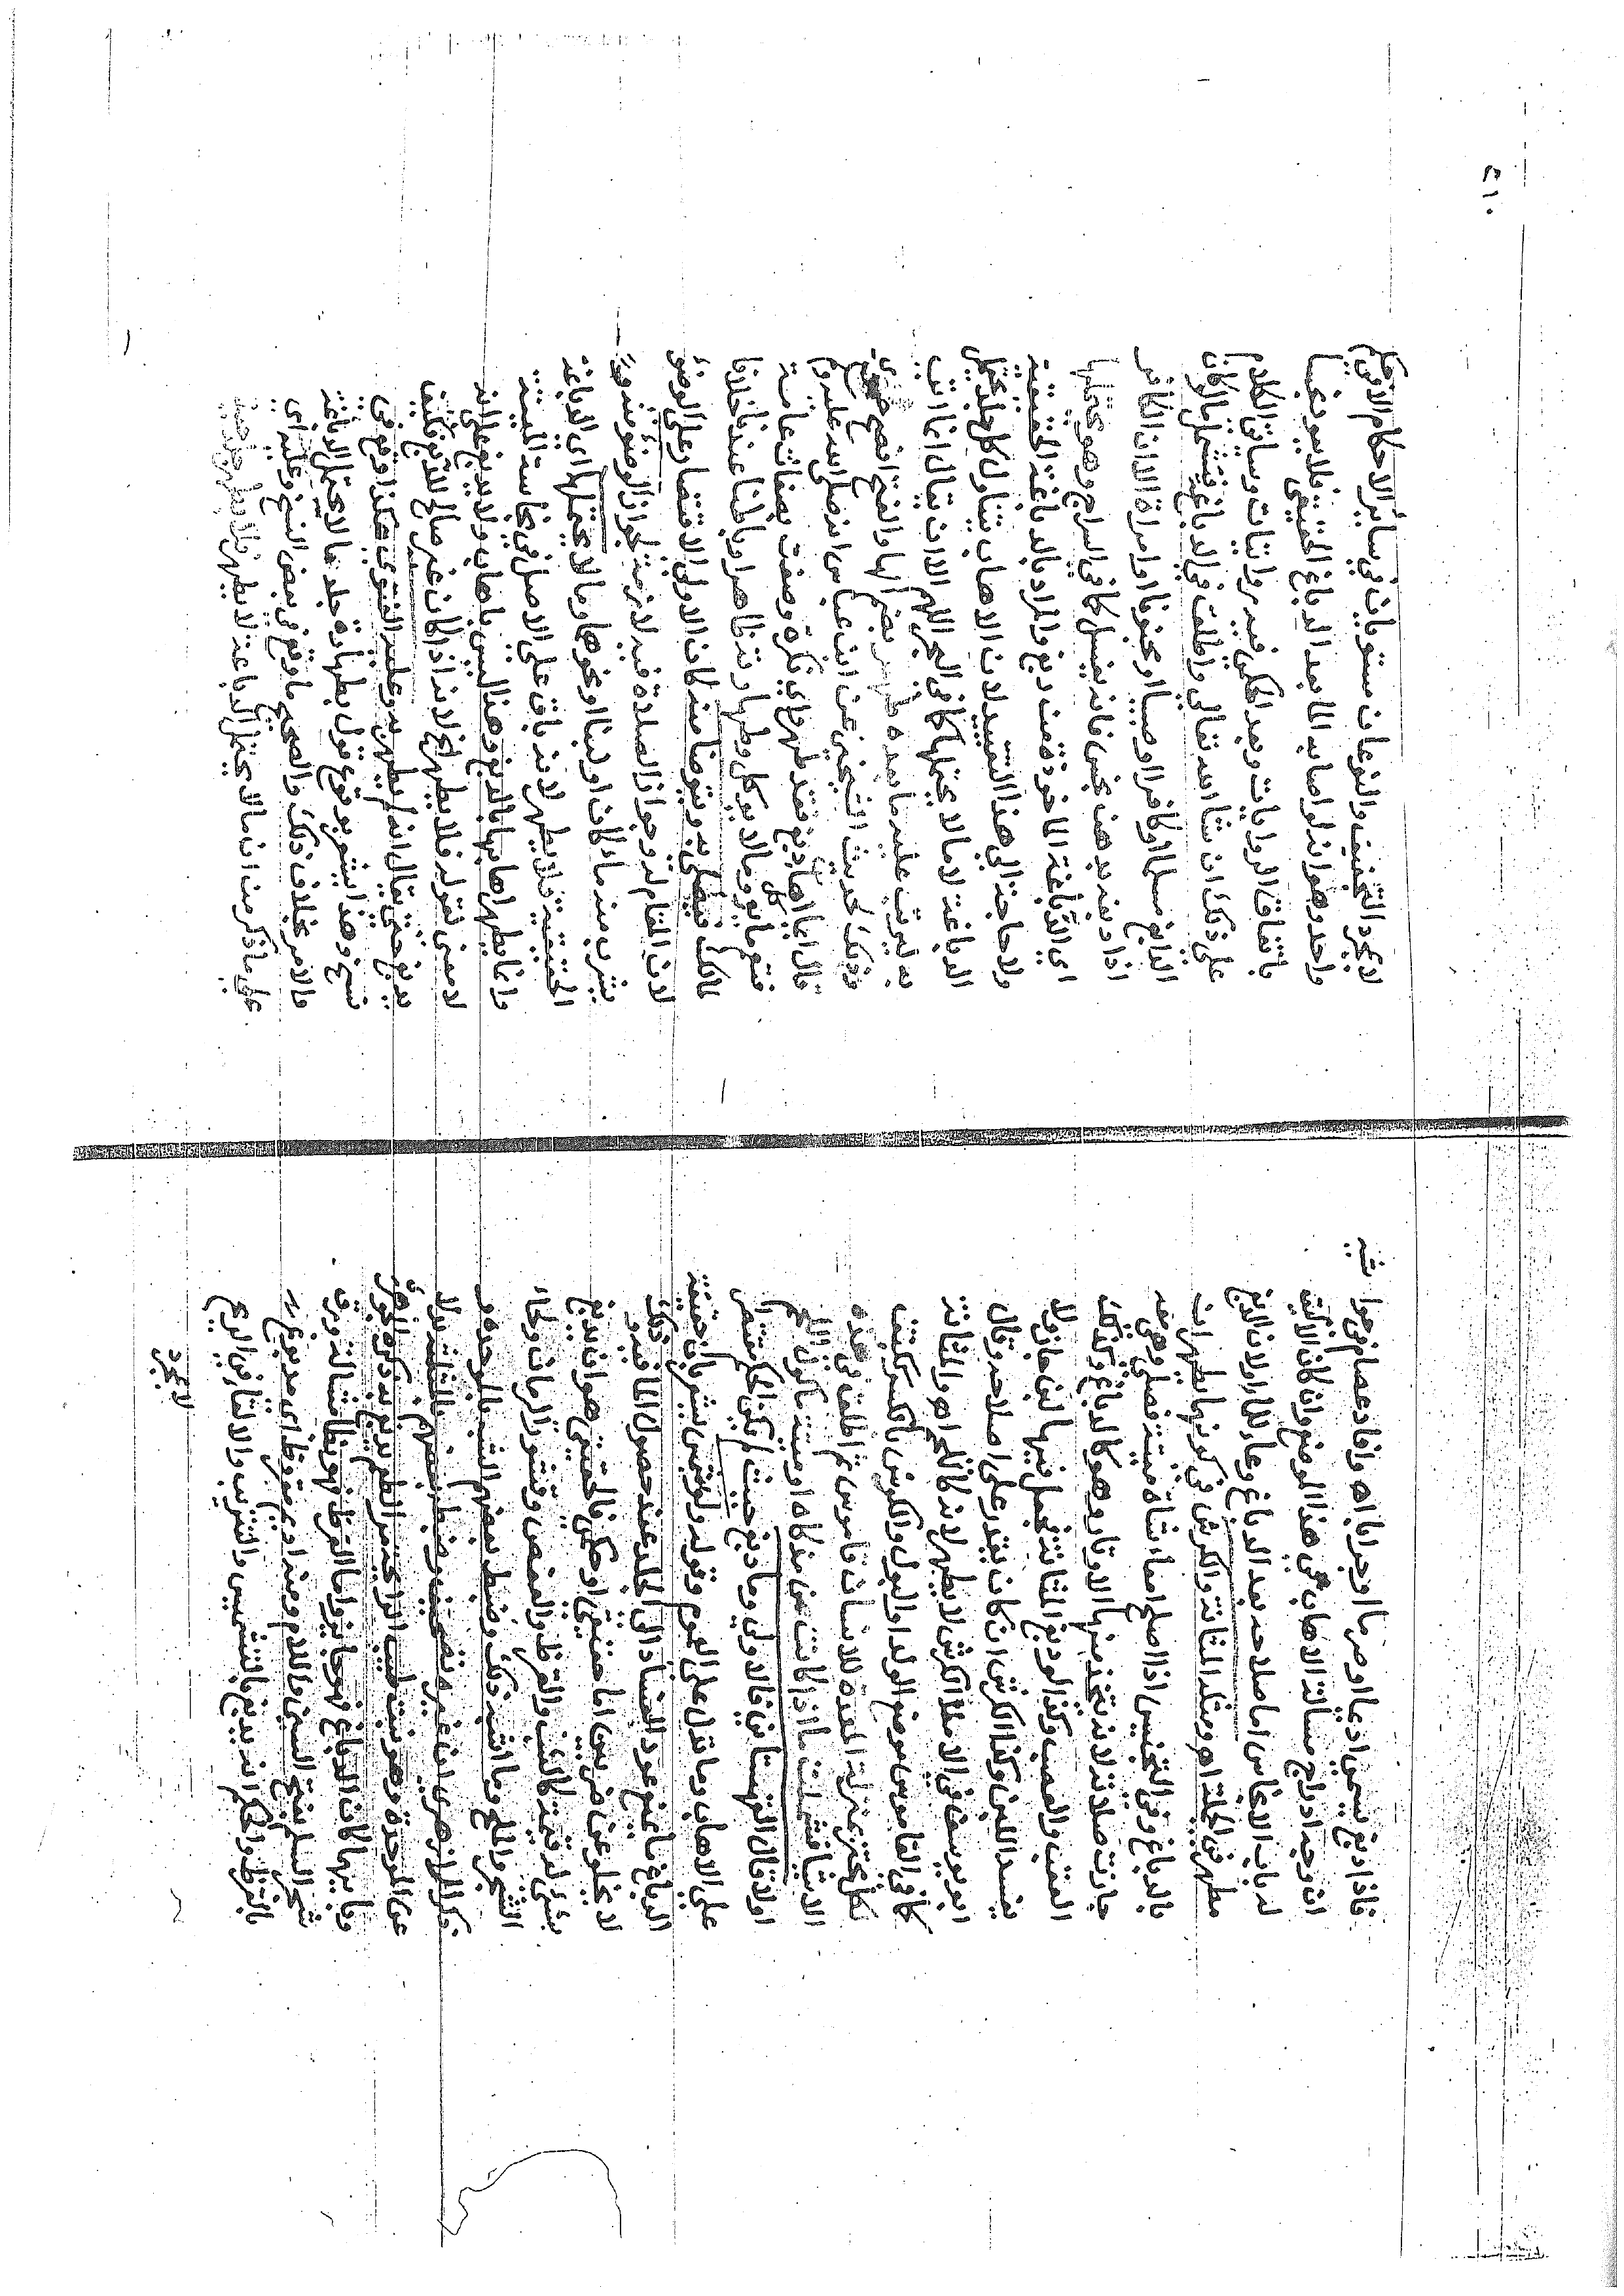 فاذا دبغ يسمى اديما او صرما او جرابا اهـ وافاد عصام في حواشيه
ان وجه ادراج مسألة الاهاب في هذا الموضع وان كان الاليق
له باب الانجاس اصلاحه بعد الدباغ وعاء للماء ولان الدبغ
مطهر في الجملة اهـ ومثله المثانة والكرش في كونهما يطهران
بالدباغ وفي التجنيس اذا اصلح امعاء شاة ميتة فصلى وهي معه
جازت صلاته لانه يتخذ منها الاوتار وهو كالدباغ وكذلك
العقب والعصب وكذا لو دبغ المثانة فجعل فيها لبن جاز ولا
يفسد اللبن وكذا الكرش ان كان يقدر على اصلاحه وقال
ابو يوسف في الاملاء الكرش لا يطهر لانه كاللحم اهـ والمثانة
كما في القاموس موضع الولد او البول والكرش بالكسر ككتف
لكل مجتر بمنزلة المعدة للانسان قاموس ثم اطلق في هذه
الاشياء فشملت ما اذا كانت من مذكاة او ميتة مأكول اللحم
اولا قال القهستاني فالاولى وما دبغ حيث لم يكن الحكم مقتصرا
على الاهاب وما تدل على العموم وقوله ولو بشمس يشير بان حقيقة
الدباغ ما يمنع عود الفساد الى الجلد عند حصول الماء فيه وذلك
لا يخلو عن ضربين اما حقيقي او حكمي فالحقيقي هو ان يدبغ
بشئ له قيمة كالشب والقرظ والعفص وقشور الرمان ولحاء
الشجر والملح وما اشبه ذلك وضبط بعضهم الشب بالموحدة و
ذكر الازهري ان غيره تصحيف وضبطه بعضهم بالمثلثة بدلا
عن الموحدة وهو نبت طيب الرائحة مر الطعم يدبغ به ذكره الجوهري
وبايهما كان الدباغ فهو جائز واما القرظ فهو بالظاء المشالة ورق
شجر السلم بفتح السين واللام ومنه اديم مقروظ اي مدبوغ
بالقرظ والحكمي انه يدبغ بالتشميس والتتريب والالقاء في الريح
لا بمجرد
٢١٠
لا بمجرد التجفيف والنوعان مستويان في سائر الاحكام الا في حكم
واحد وهو انه لو اصابه الماء بعد الدباغ الحقيقي فلا يعود نجسا
باتفاق الروايات وبعد الحكمي فيه روايتان وسياق الكلام
على ذلك ان شاء الله تعالى واطلق في الدباغ فشمل ما لو كان
الدابغ مسلما او كافرا او صبيا او مجنونا او امراة الا ان الكافر
اذا دبغه بدهن نجس فانه يغسل كما في السراج وهو يحتملها
اي الدباغة الماخوذة من دبغ والمراد بالدباغة الحقيقية
ولا حاجة الى هذا التقييد لان الاهاب يتناول كل جلد يحتمل
الدباغة لا ما لا يحتملها كما في البحر اللهم الا ان يقال انما اتى
به ليرتب عليه ما بعده طهر بضم الهاء والفتح افصح
وذلك لحديث الشيخين عن ابن عباس انه صلى الله عليه وسلم
قال ايما اهاب دبغ فقد طهر واي نكرة وصفت بصفة عامة
فتعم ما يؤكل وما لا يؤكل وطهارته ظاهرا وباطنا عندنا خلافا
لمالك فيصلى به ويتوضأ منه كان الاولى الاقتصار على الوضوء
لان المقام له وجواز الصلاة فيه لازمة لجواز الوضوء منه
يشرب منه ماء كان او لبنا او نحوها وما لا يحتملها اي الدباغة
الحقيقية فلا يطهر لانه باق على الاصل في نجاسة الميتة
وانما يطهر اهابها بالدبغ وهذا ليس باهاب ولا يدبغ على انه
لا معنى لقوله فلا يطهر الخ لانه اذا كان غير صالح للدبغ فكيف
يدبغ حتى يقال انه لم يطهر به وعليه الفتوى هكذا وقع في
نسخ وهذا يشعر بوقوع قول بطهارة جلد ما لا يحتمل الدباغة
فالامر بخلاف ذلك والصحيح ما وقع في بعض النسخ وعليه اي
على ما ذكر من ان ما لا يحتمل الدباغة لا يطهر